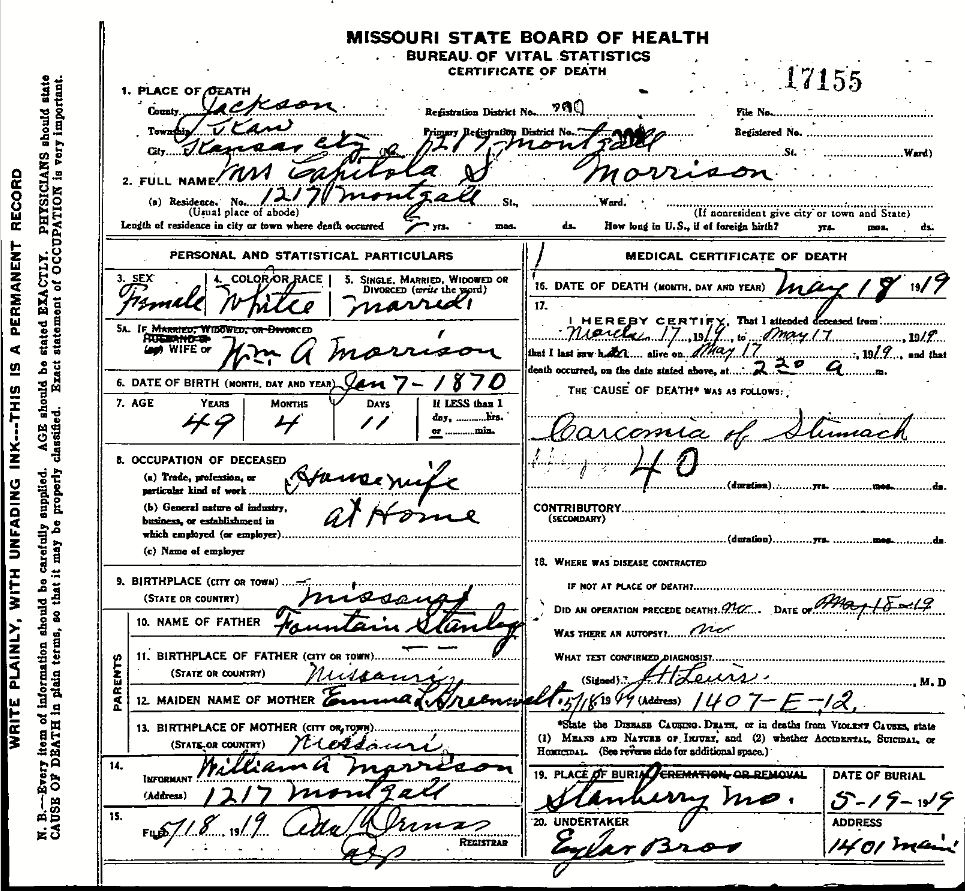 MISSOURI STATE BOARD OF HEALTH
BUREAU OF VITAL STATISTICS
CERTIFICATE OF DEATH
17155
1. PLACE OF DEATH
County Jackson Registration District No. File No.
Township Kaw Primary Registration District No. Registered No.
City Kansas City (No. 1217 Montgall St. Ward)
2. FULL NAME Mrs Capitola S Morrison
(a) Residence. No. 1217 Montgall St., Ward.
(Usual place of abode) (If nonresident give city or town and State)
Length of residence in city or town where death occurred yrs. mos. ds. How long in U.S., if of foreign birth? yrs. mos. ds.
PERSONAL AND STATISTICAL PARTICULARS
3. SEX 4. COLOR OR RACE 5. SINGLE, MARRIED, WIDOWED OR DIVORCED (write the word)
Female White Married
5A. IF MARRIED, WIDOWED, OR DIVORCED
HUSBAND OF
(or) WIFE OF Wm. A Morrison
6. DATE OF BIRTH (MONTH, DAY AND YEAR) Jan 7 - 1870
7. AGE YEARS MONTHS DAYS If LESS than 1 day, hrs. or min.
49 4 11
8. OCCUPATION OF DECEASED
(a) Trade, profession, or
particular kind of work Housewife
(b) General nature of industry,
business, or establishment in
which employed (or employer) at Home
(c) Name of employer
9. BIRTHPLACE (CITY OR TOWN)
(STATE OR COUNTRY) Missouri
PARENTS
10. NAME OF FATHER Fountain Stanley
11. BIRTHPLACE OF FATHER (CITY OR TOWN)
(STATE OR COUNTRY) Missouri
12. MAIDEN NAME OF MOTHER Emma L Greenwalt
13. BIRTHPLACE OF MOTHER (CITY OR TOWN)
(STATE OR COUNTRY) Missouri
14. INFORMANT William A Morrison
(Address) 1217 Montgall
15. FILED 5/18 1919 Ada
REGISTRAR
MEDICAL CERTIFICATE OF DEATH
16. DATE OF DEATH (MONTH, DAY AND YEAR) May 18 1919
17.
I HEREBY CERTIFY, That I attended deceased from
March 17, 1919, to May 17, 1919
that I last saw her alive on May 17, 1919, and that
death occurred, on the date stated above, at 2 20 a m.
THE CAUSE OF DEATH* WAS AS FOLLOWS:
Carcomia of Stumach
40
(duration) yrs. mos. ds.
CONTRIBUTORY
(SECONDARY)
(duration) yrs. mos. ds.
18. WHERE WAS DISEASE CONTRACTED
IF NOT AT PLACE OF DEATH?
DID AN OPERATION PRECEDE DEATH? no DATE OF May 18-19
WAS THERE AN AUTOPSY? no
WHAT TEST CONFIRMED DIAGNOSIS?
(Signed) Lewis, M. D
5/18 1919 (Address) 1407-E-12.
*State the DISEASE CAUSING DEATH, or in deaths from VIOLENT CAUSES, state
(1) MEANS AND NATURE OF INJURY, and (2) whether ACCIDENTAL, SUICIDAL, or
HOMICIDAL. (See reverse side for additional space.)
19. PLACE OF BURIAL, CREMATION, OR REMOVAL DATE OF BURIAL
Stanberry Mo. 5-19-1919
20. UNDERTAKER ADDRESS
Eylar Bros 1401 Main
WRITE PLAINLY, WITH UNFADING INK---THIS IS A PERMANENT RECORD
N. B.—Every item of information should be carefully supplied. AGE should be stated EXACTLY. PHYSICIANS should state
CAUSE OF DEATH in plain terms, so that it may be properly classified. Exact statement of OCCUPATION is very important.